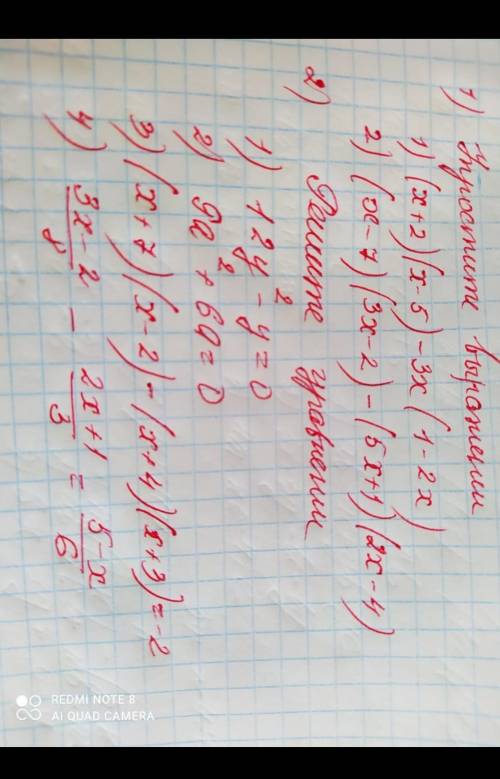 1) Упростите выражении
1) (x+2)(x-5)-3x(1-2x)
2) (x-7)(3x-2)-(5x+1)(2x-4)
2) Решите уравнении
1) 12y-y²=0
2) 9a²+6a=0
3) (x+7)(x-2)-(x+4)(x+3)=-2
4) (3x-2)/y - (2x+1)/3 = (5-x)/6
REDMI NOTE 8
AI QUAD CAMERA